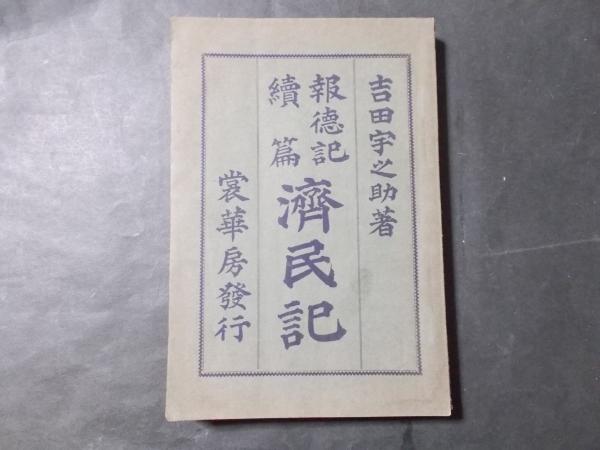 吉田宇之助著
報德記
續篇
濟民記
裳華房發行